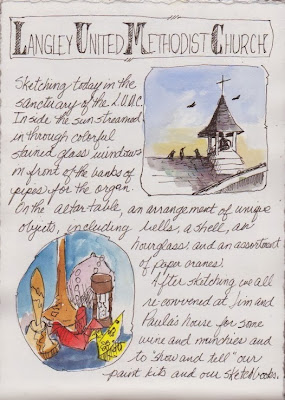 LANGLEY UNITED METHODIST CHURCH
Sketching today in the
sanctuary of the L.U.M.C.
Inside the sun streamed
in through colorful
stained glass windows
in front of the banks of
pipes for the organ.
On the altar table, an arrangement of unique
objects, including bells, a shell, an
hourglass and an assortment
of paper cranes.
After sketching we all
re-convened at Jim and
Paula's house for some
wine and munchies and
to "show and tell" our
paint kits and our sketchbooks.